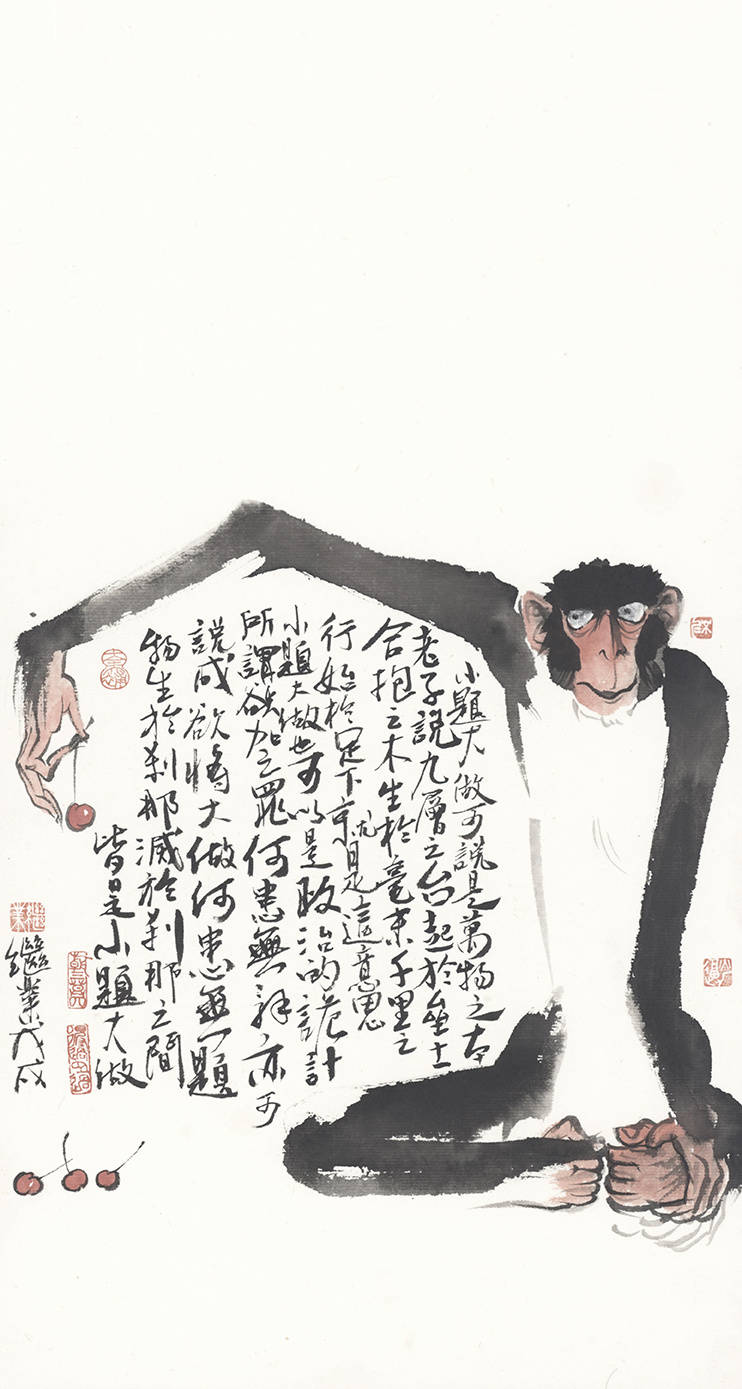 小題大做可說是萬物之本
老子說九層之台起於壘土
合抱之木生於毫末千里之
行始於足下就是這意思
小題大做也可以是政治的詭計
所謂欲加之罪何患無辭亦可
說成欲將大做何患無題
物生於剎那滅於剎那之間
皆是小題大做
繼業戊戌